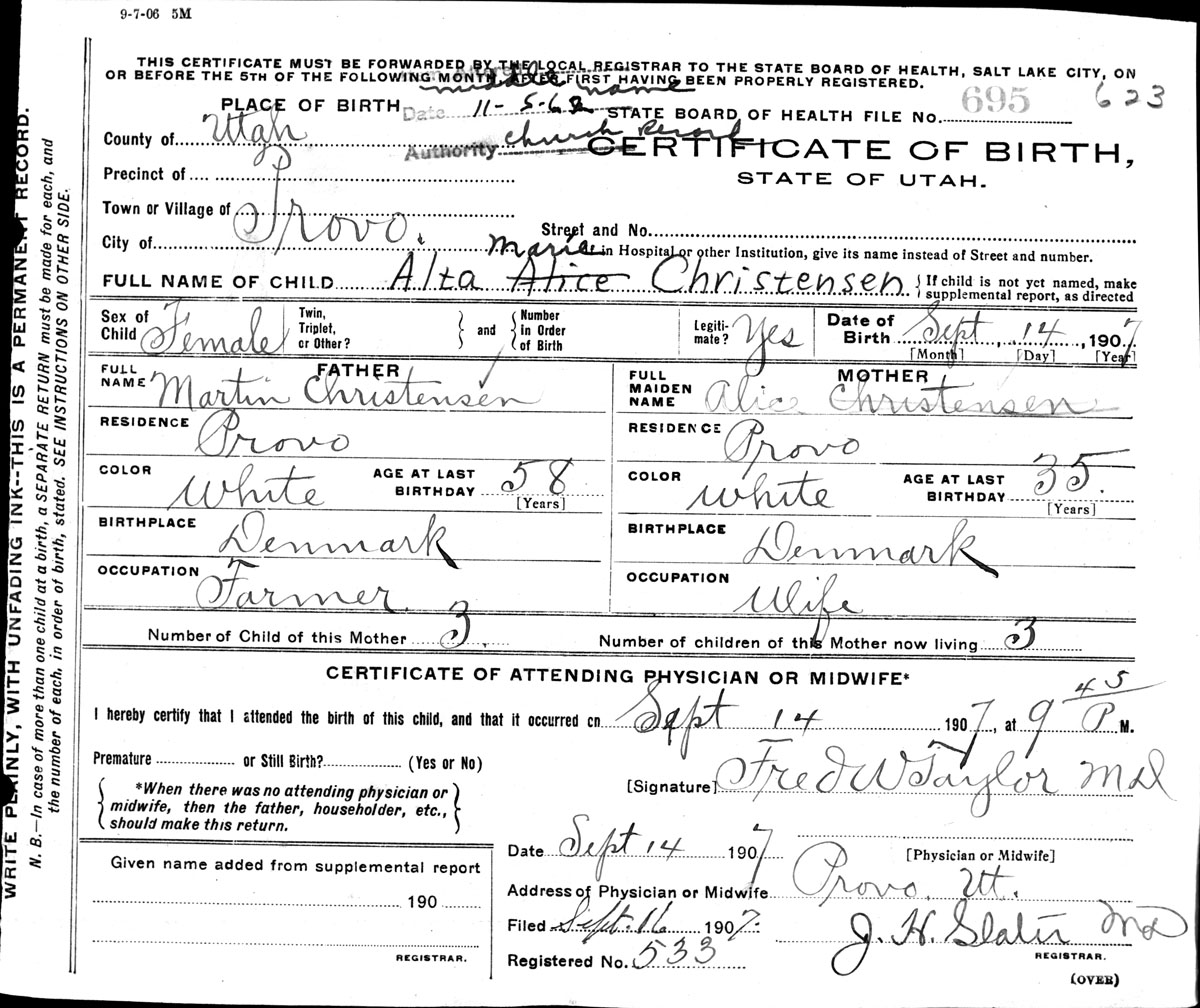 9-7-06 5M
THIS CERTIFICATE MUST BE FORWARDED BY THE LOCAL REGISTRAR TO THE STATE BOARD OF HEALTH, SALT LAKE CITY, ON
OR BEFORE THE 5TH OF THE FOLLOWING MONTH, AFTER FIRST HAVING BEEN PROPERLY REGISTERED.
middle name
PLACE OF BIRTH
Date 11-5-62
STATE BOARD OF HEALTH FILE NO. 695 623
County of Utah
Authority Church Record
CERTIFICATE OF BIRTH,
STATE OF UTAH.
Precinct of
Town or Village of
City of Provo.
Street and No.
in Hospital or other Institution, give its name instead of Street and number.
Marie
FULL NAME OF CHILD Alta Alice Christensen
If child is not yet named, make
supplemental report, as directed
Sex of Child Female
Twin, Triplet, or Other?
and
Number in Order of Birth
Legiti-mate? Yes
Date of Birth Sept. 14, 1907
[Month] [Day] [Year]
FATHER
FULL NAME Martin Christensen
MOTHER
FULL MAIDEN NAME Alice Christensen
RESIDENCE Provo
RESIDENCE Provo
COLOR White
AGE AT LAST BIRTHDAY 58
[Years]
COLOR White
AGE AT LAST BIRTHDAY 35.
[Years]
BIRTHPLACE Denmark
BIRTHPLACE Denmark
OCCUPATION Farmer
OCCUPATION Wife
Number of Child of this Mother 3.
Number of children of this Mother now living 3
CERTIFICATE OF ATTENDING PHYSICIAN OR MIDWIFE*
I hereby certify that I attended the birth of this child, and that it occurred on Sept 14 1907, at 9 45 P M.
Premature or Still Birth? (Yes or No)
[Signature] Fred W Taylor MD
*When there was no attending physician or
midwife, then the father, householder, etc.,
should make this return.
Date Sept 14 1907
[Physician or Midwife]
Given name added from supplemental report
190
REGISTRAR.
Address of Physician or Midwife Provo, Ut.
Filed Sept. 16 1907.
J. H. Slater MD
REGISTRAR.
Registered No. 533
(OVER)
WRITE PLAINLY, WITH UNFADING INK--THIS IS A PERMANENT RECORD.
N. B.—In case of more than one child at a birth, a SEPARATE RETURN must be made for each, and
the number of each, in order of birth, stated. SEE INSTRUCTIONS ON OTHER SIDE.